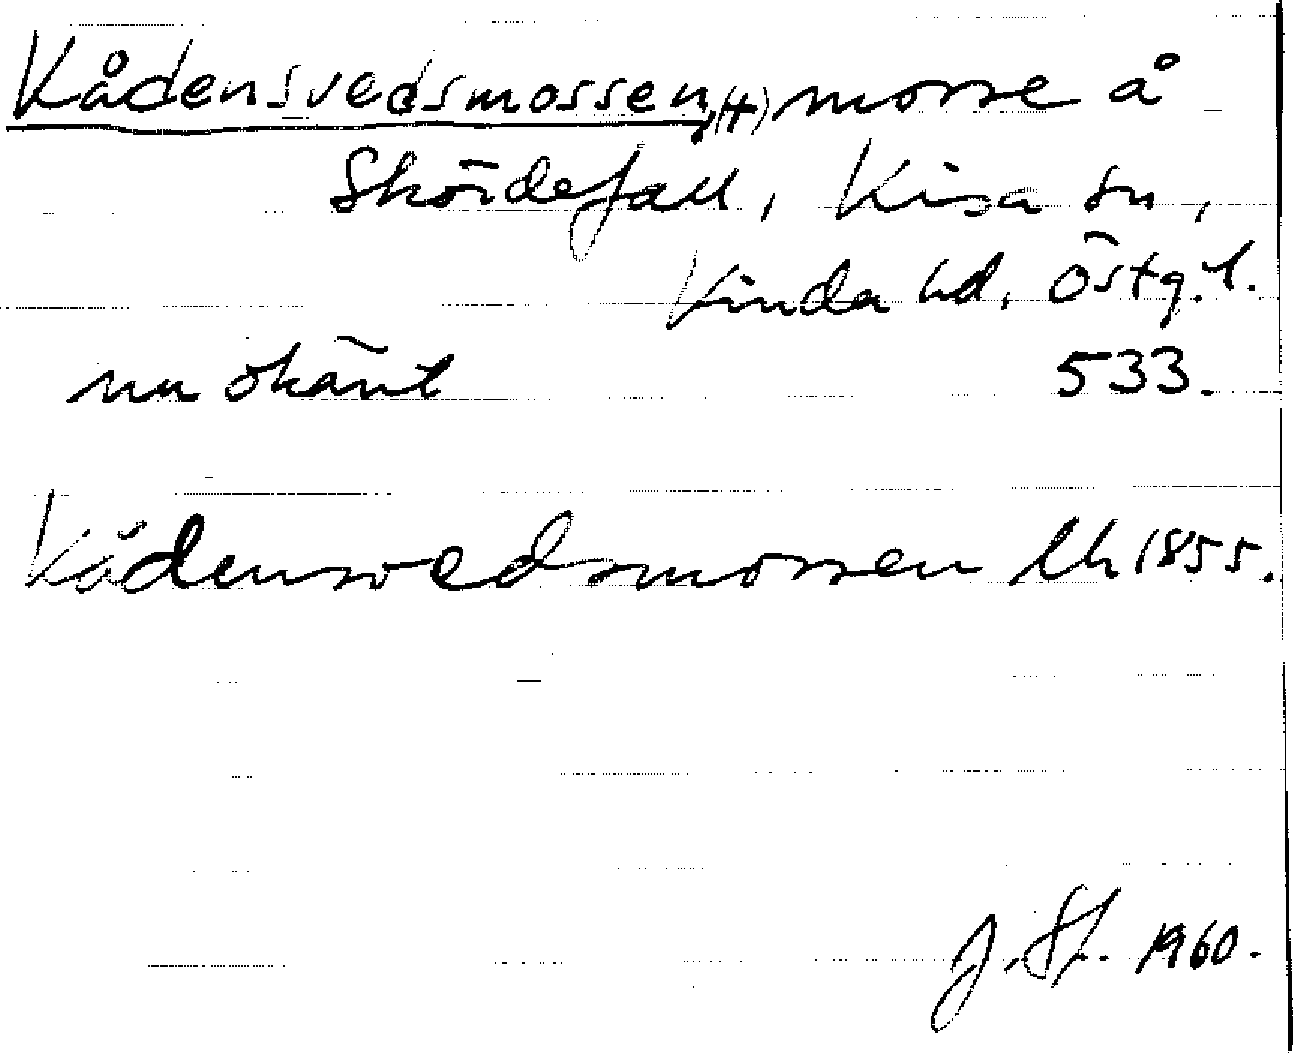 Kådensvedsmossen, (+) mosse å
Skördefall, Kisa sn,
Kinda hd, Östg. l.
nu okänt 533.
Kådensvedsmossen lh 1855.
J. St. 1960.